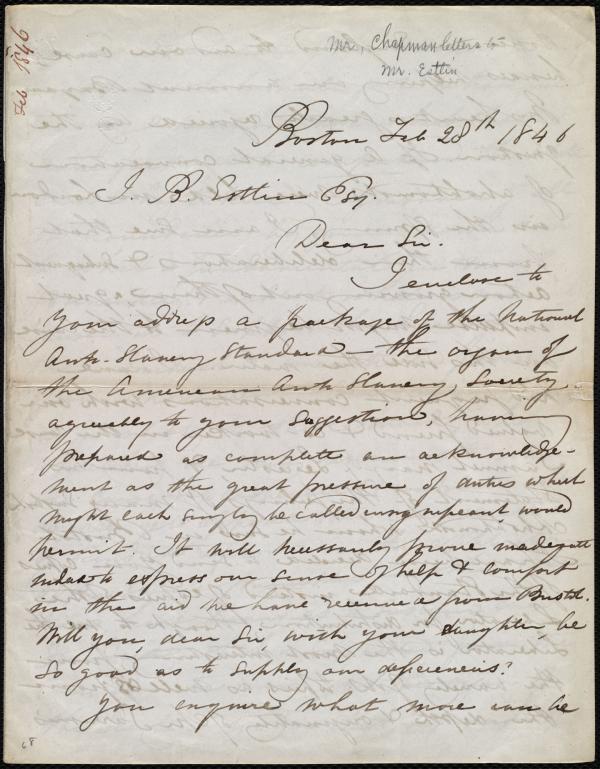 Feb 1846
Mr. Chapman letters to
Mr. Estlin
Boston Feb 28th 1846
J. B. Estlin Esq.
Dear Sir.
I enclose to
your address a package of the National
Anti-Slavery Standard - the organ of
the American Anti Slavery Society
agreeably to your suggestion, having
prepared as complete an acknowledge-
ment as the great pressure of duties which
might each singly be called would
permit. It will necessarily prove inadequate
indeed to express our sense of help & comfort
in the aid we have received from Bristol.
Will you, dear Sir, with your daughter, be
so good as to supply our deficiencies?
You enquire what more can be
68